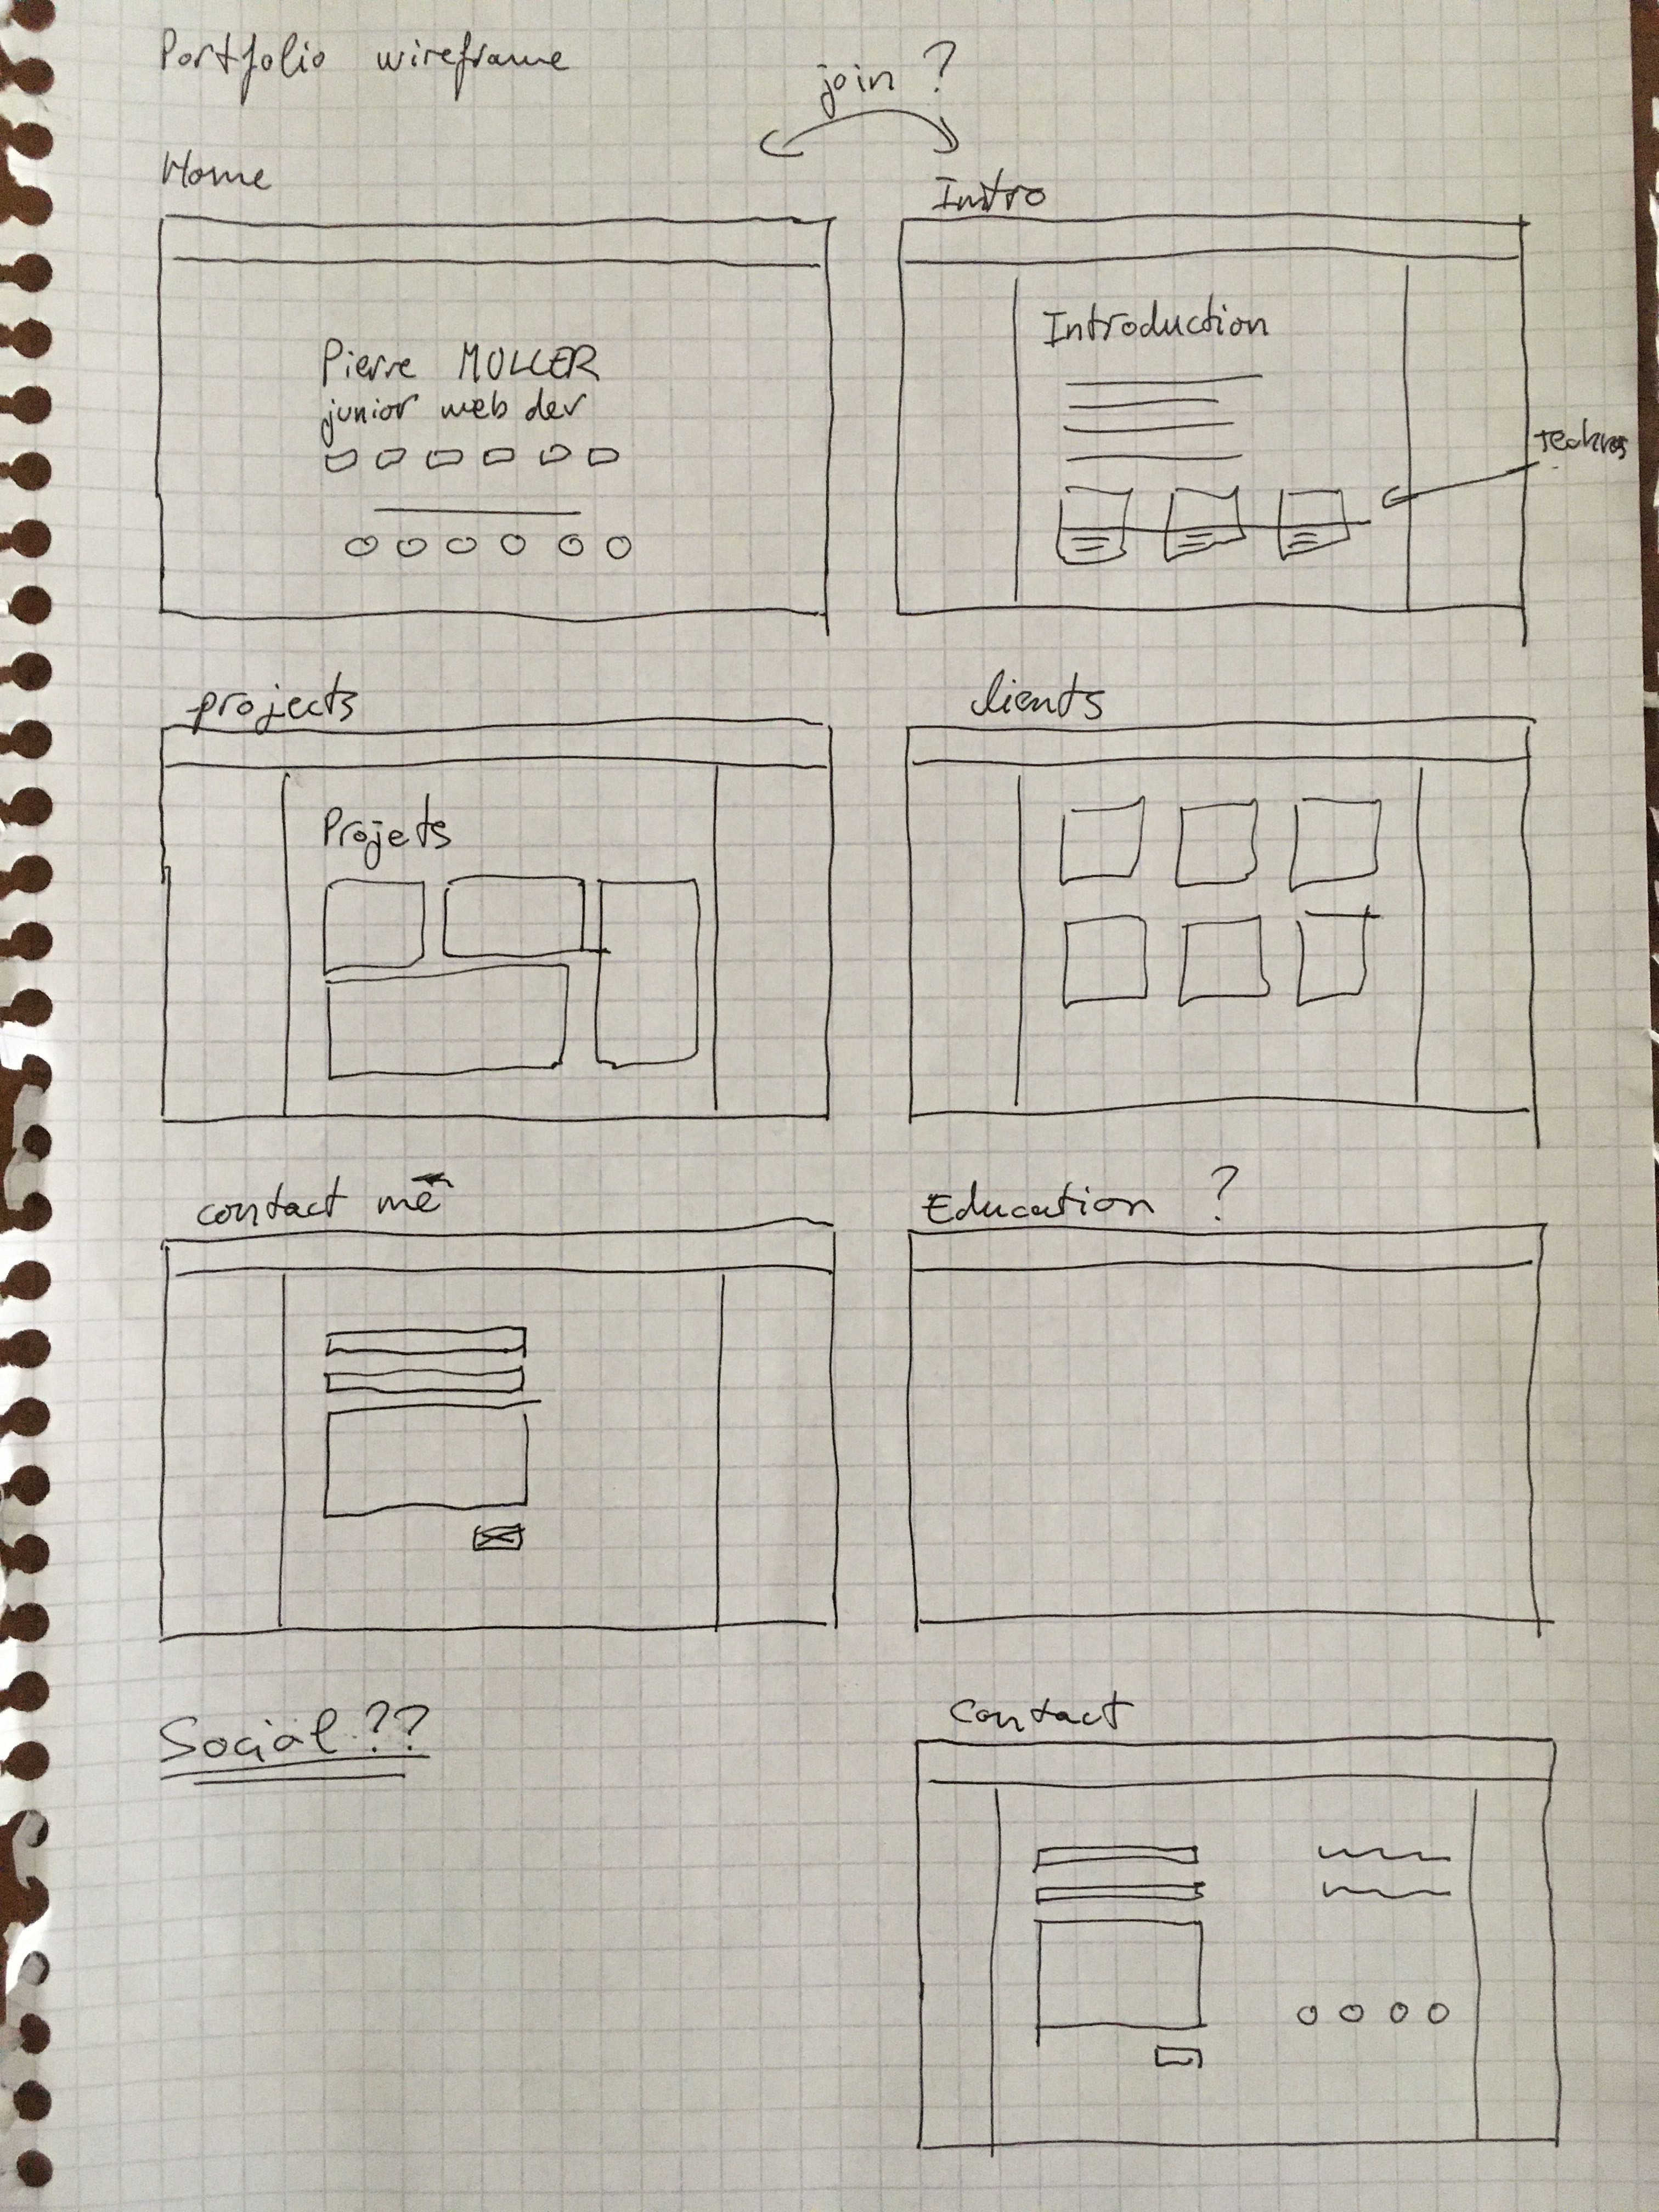 Portfolio wireframe
join ?
Home
Intro
Pierre MULLER
junior web dev
Introduction
projects
clients
Projets
contact me
Education ?
Social ??
Contact